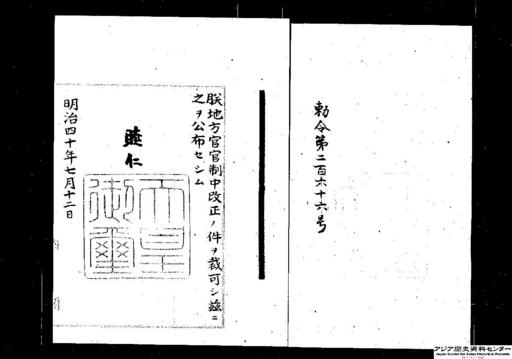 勅令第二百六十六号
朕地方官官制中改正ノ件ヲ裁可シ茲ニ
之ヲ公布セシム
睦仁
天皇御璽
明治四十年七月十二日
アジア歴史資料センター
Japan Center for Asian Historical Records